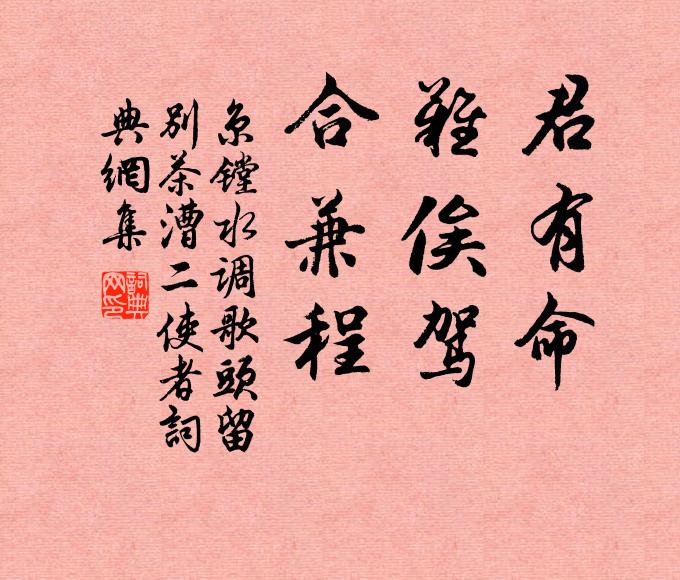 君有命
難俟驾
合兼程
京镗水调歌頭留
别茶漕二使者詞
典網集
詞典
网印